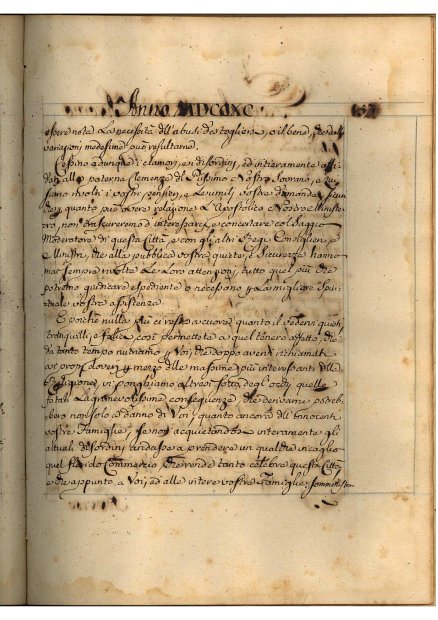 Anno MDCCXC 137
essere nota La necessità dell'abusi da togliersi, o il bene, che dalle
variazioni medesime può resultarne.
Cessino adunque i clamori, e i disordini, ed interamente affi-
dati alla paterna Clemenza del Nostro Sovrano,
siano rivolti i vostri pensieri, e Le umili vostre domande
quanto può avere relazione L'Apostolico Nostro Ministe-
ro, non trascureremo d'interessarci, e concertare col Saggio
Moderatore di questa Città, e con gli altri Regi
Ministri, che alla pubblica vostra quiete, e Sicurezza hanno
mai sempre rivolte Le Loro attenzioni, tutto quel più che
potremo giudicare espediente o necessario p. La migliore Spiri-
tuale vostra assistenza.
E poichè nulla più ci resta a cuore quanto il vedervi quieti
tranquilli, e felici, così permettete a quel tenero affetto, che
da tanto tempo nutriamo p. Voi, che doppo avervi richiamati
ai propri doveri p. mezzo delle massime più interessanti della
Religione, vi ponghiamo altresì sotto degl'occhj quelle
fatali Lagrimevolissime conseguenze, che derivarne potreb-
bero non solo a danno di Voi, quanto ancora dell'innocenti
vostre Famiglie, se non acquietandosi interamente gli
attuali disordini andasse a prendere un qualche incaglio
quel florido Commercio che rende tanto celebre questa Città
e che appunto a Voi, ed alle intere vostre Famiglie somministra